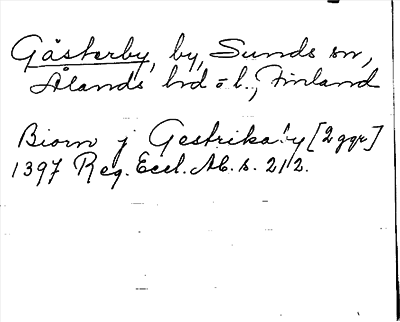 Gästerby, by, Sunds sn,
Ålands hd o l., Finland
Biorn j Gestrika!y [2 ggr]
1397 Reg. Eccl. Ab. s. 212.